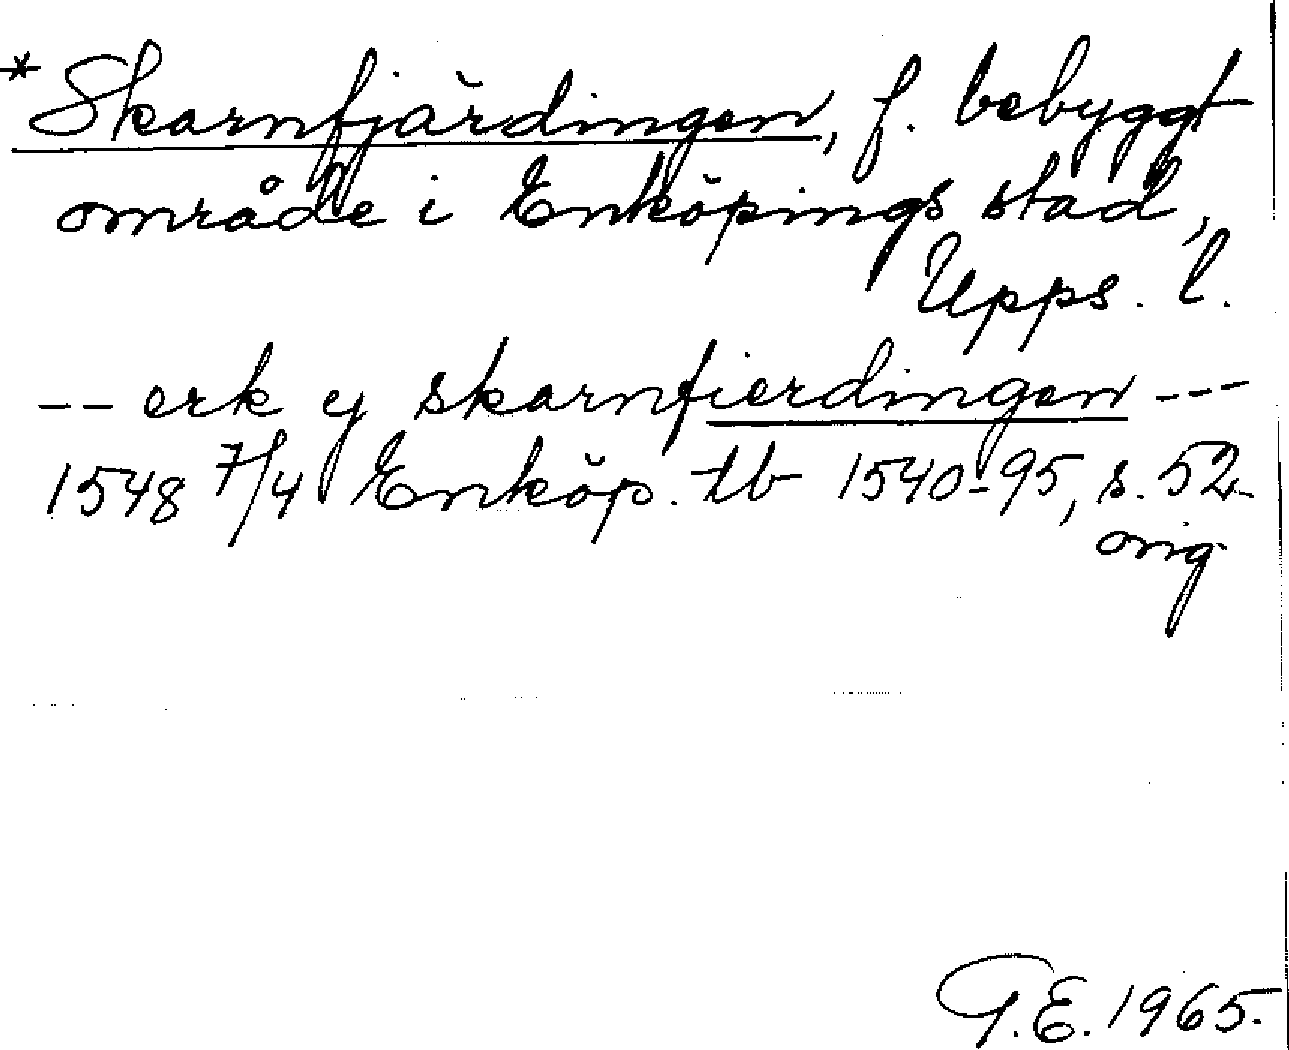 *Skarnfjärdingen, f. bebyggt
område i Enköpings stad,
Upps. l.
-- erk y skarnfierdingen ---
1548 7/4 Enköp. tb 1540-95, s. 52
orig
G.E. 1965.